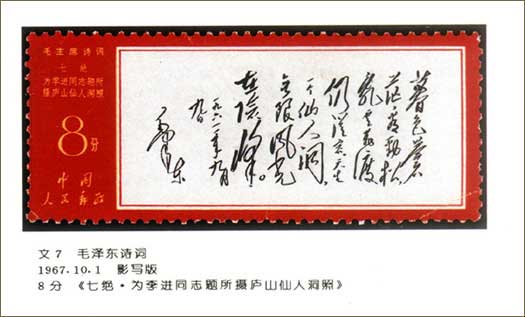 毛主席诗词
七绝
为李进同志题所
摄庐山仙人洞照
8分
中国
人民邮政
暮色蒼
茫看勁松
乱云飛渡
仍從容天生
一个仙人洞
無限風光
在險峰。
一九六一年九月
九日
毛泽东
文7 毛泽东诗词
1967.10.1 影写版
8分 《七绝·为李进同志题所摄庐山仙人洞照》